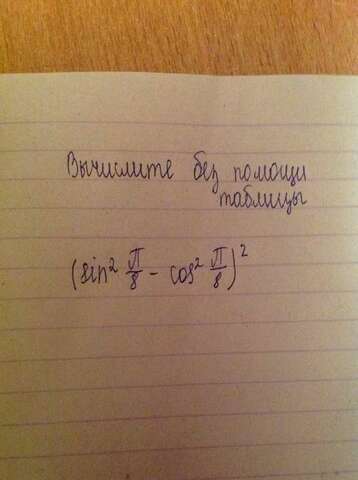 Вычислите без помощи
таблицы
(sin² π/8 - cos² π/8)²